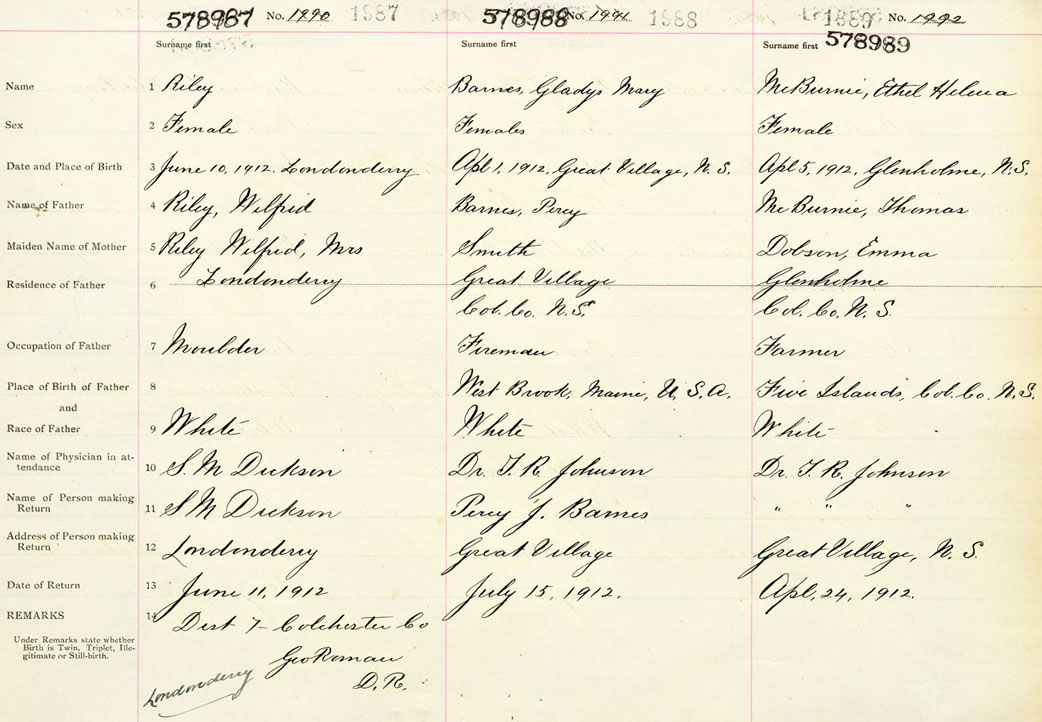 578987 No. 1990 1987 578988 No. 1991 1988 1989 No. 1992
Surname first Surname first Surname first 578989
Name 1 Riley Barnes, Gladys Mary McBurnie, Ethel Helena
Sex 2 Female Females Female
Date and Place of Birth 3 June 10, 1912. Londonderry Apl 1, 1912. Great Village, N. S. Apl 5, 1912. Glenholme, N.S.
Name of Father 4 Riley, Wilfrid Barnes, Percy McBurnie, Thomas
Maiden Name of Mother 5 Riley Wilfrid, Mrs Smith Dobson, Emma
Residence of Father 6 Londonderry Great Village Glenholme
Col. Co. N.S. Col. Co. N. S.
Occupation of Father 7 Moulder Fireman Farmer
Place of Birth of Father 8 West Brook, Maine, U. S. A. Five Islands, Col. Co. N.S.
and
Race of Father 9 White White White
Name of Physician in at-
tendance 10 S. M Dickson Dr. T. R. Johnson Dr. T. R. Johnson
Name of Person making
Return 11 S M Dickson Percy J. Barnes " " "
Address of Person making
Return 12 Londonderry Great Village Great Village, N. S.
Date of Return 13 June 11, 1912 July 15, 1912. Apl. 24, 1912.
REMARKS 14 Dist 7 - Colchester Co
Under Remarks state whether
Birth is Twin, Triplet, Ille-
gitimate or Still-birth.
Geo Roman
D. R.
Londonderry